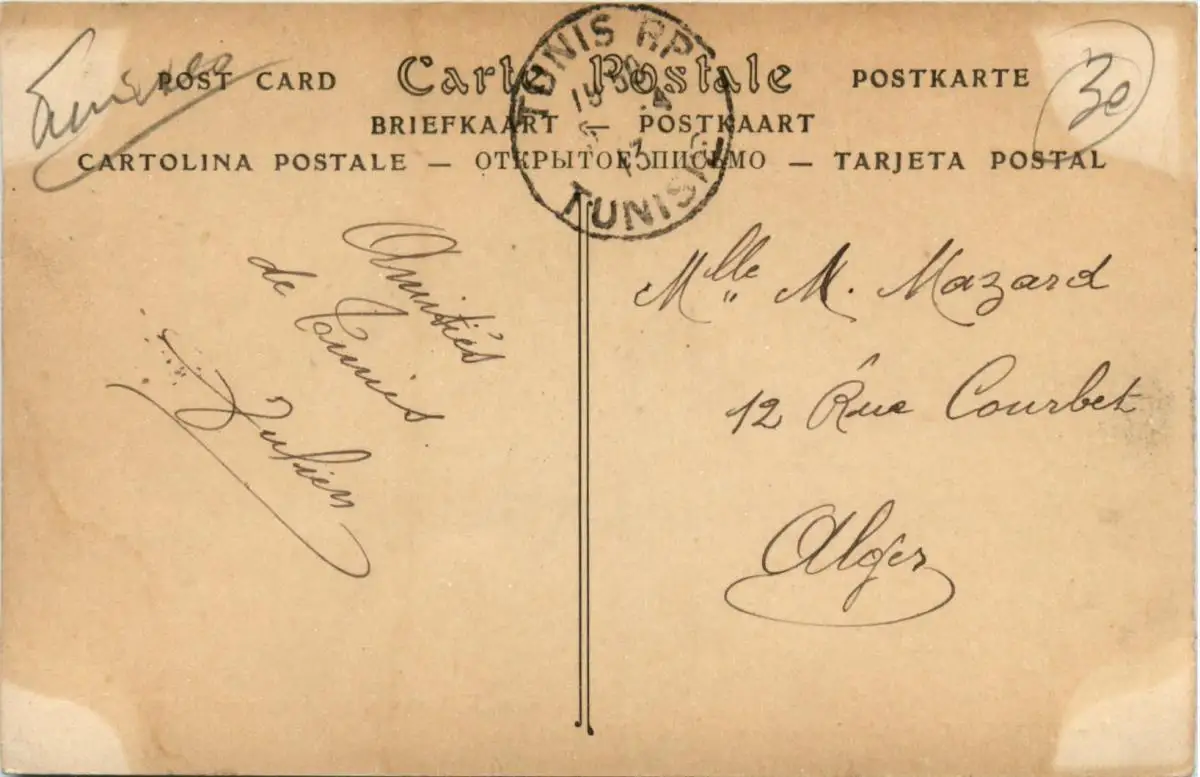 POST CARD Carte Postale POSTKARTE
3e
BRIEFKAART — POSTKAART
CARTOLINA POSTALE — ОТКРЫТОЕ ПИСЬМО — TARJETA POSTAL
TUNIS RP
TUNISIE
Amitiés
de Tunis
Julien
Mlle M. Mazard
12 Rue Courbet
Alger